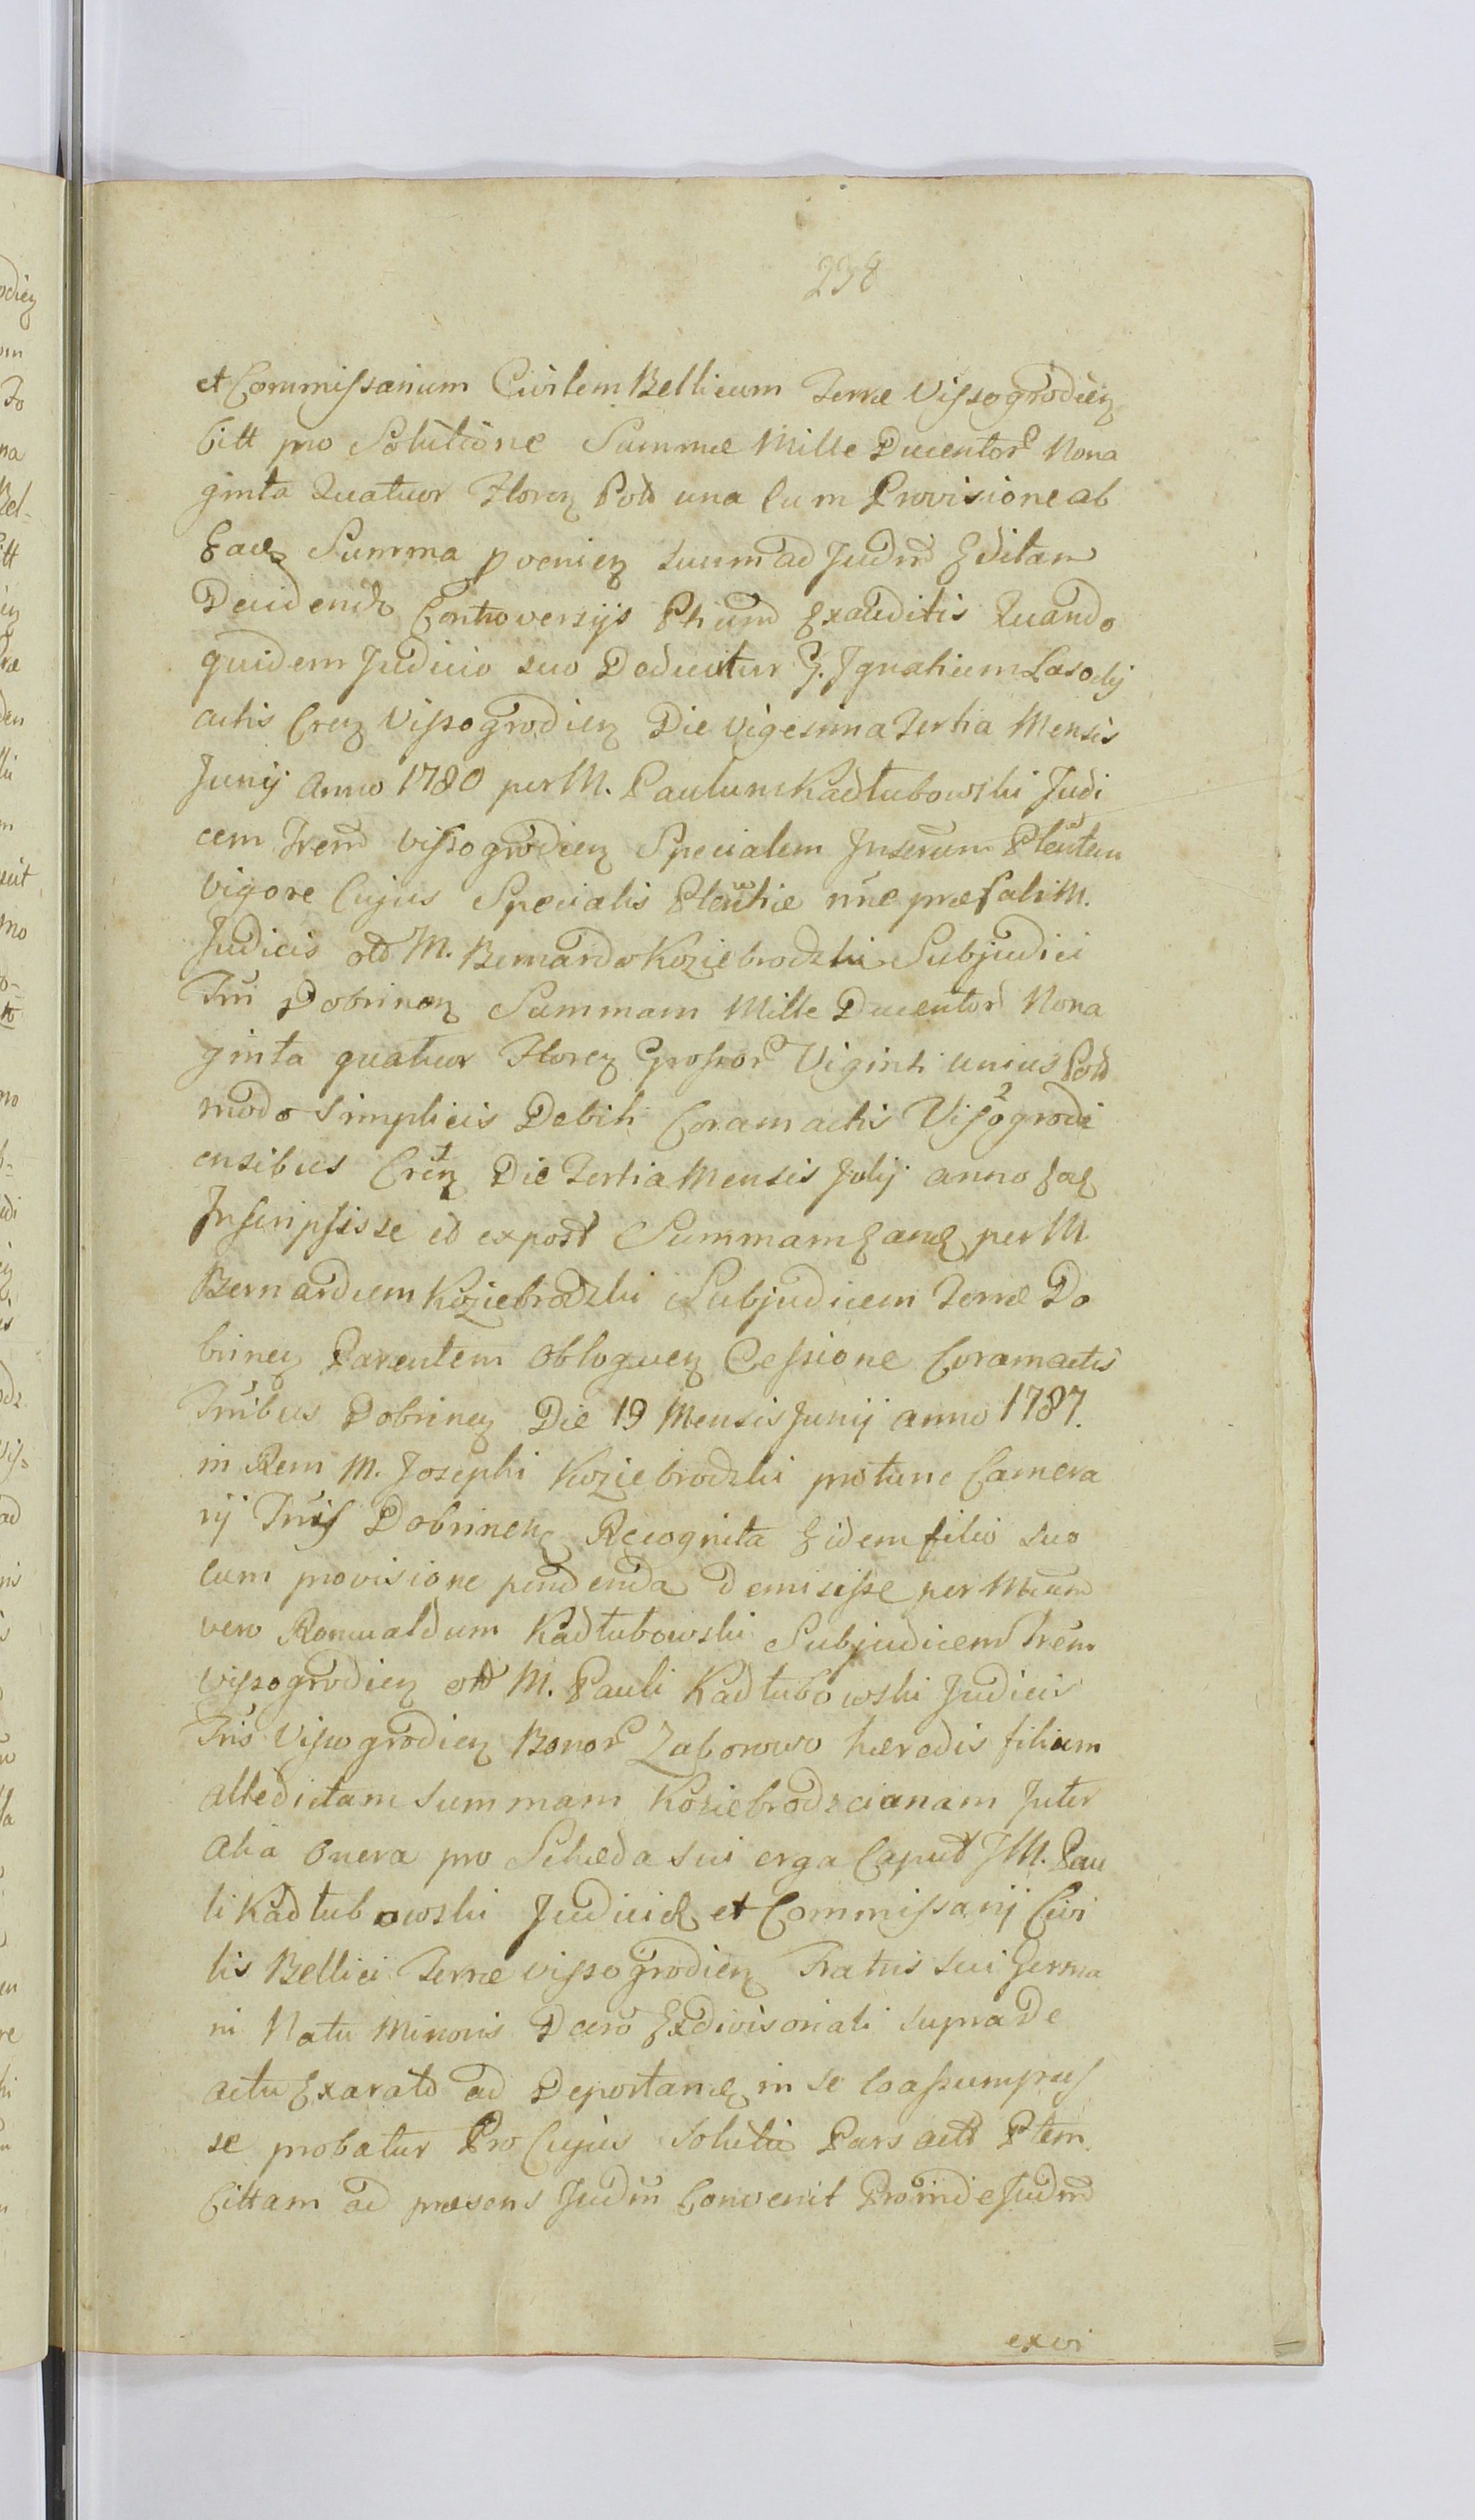 238
et Commissarium Civilem Bellicum Terræ Vissogrodieñ
Citt pro Solutione Summæ Mille Ducentor Nona
ginta Quatuor Floreñ Pold una Cum Provisione ab
Eade Summa pvenieñ suum ad Judm Editam
Decidend Controversijs Ptium Exauditis Quando
quidem Judicio suo Deducitur G. Ignatium Lasocki
actis Creñ Vissogrodieñ Die Vigesima Tertia Mensis
Junij Anno 1780 per M. Paulum Kadłubowski Judi
cem Trem Vissogrodieñ Specialem Inserum Plentem
Vigore Cujus Specialis Plentiæ nne præfati M.
Judicis old M. Bernardo Koziebrodzki Subjudici
Tri Dobrineñ Summam Mille Ducentor Nona
ginta quatuor Floreñ Grossor Viginti unius Pold
modo simplicis Debiti Coram actis Vissogrodi
ensibus Creñ Die Tertia Mensis Julij anno Eod
Inscripsisse et expost Summam Eand per M.
Bernardum Koziebrodzki Subjudicem Terræ Do
brineñ Parentem obloqueñ Cessione Coram actis
Tribus Dobrineñ Die 19 Mensis Junij anno 1787.
in Rem M. Josephi Koziebrodzki pro tunc Camera
rij Tris Dobrineñ Recognita Eidem filio suo
Cum provisione pendenda Demisisse per Mcum
vero Romualdum Kadłubowski Subjudicem Trem
Vissogrodieñ old M. Pauli Kadłubowski Judicis
Tris Vissogrodieñ Bonor Zaborowo hæredis filium
alledictam summam Koziebrodzcianam Inter
alia onera pro Scheda sui erga Caput JM. Pau
li Kadłubowski Judicis et Commissarij Civi
lis Bellici Terræ Vissogrodieñ Fratris sui Germa
ni Natu Minoris Dcero Exdivisoriali supra De
actu Exarato ad Deportand in se Coassumpsis
se probatur Pro Cujus solutio Pars actt Ptem
Cittam ad præsens Judm Convenit Proinde Judm
exvi